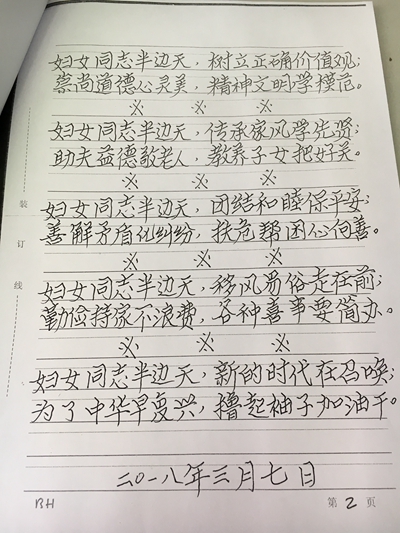 妇女同志半边天，树立正确价值观；
崇尚道德心灵美，精神文明学模范。
※ ※ ※
妇女同志半边天，传承家风学先贤；
助夫益德敬老人，教养子女把好关。
※ ※ ※
妇女同志半边天，团结和睦保平安；
善解矛盾化纠纷，扶危帮困心向善。
※ ※ ※
妇女同志半边天，移风易俗走在前；
勤俭持家不浪费，各种喜事要简办。
※ ※ ※
妇女同志半边天，新的时代在召唤；
为了中华早复兴，撸起袖子加油干。
二〇一八年三月七日
BH 第 2 页
装
订
线